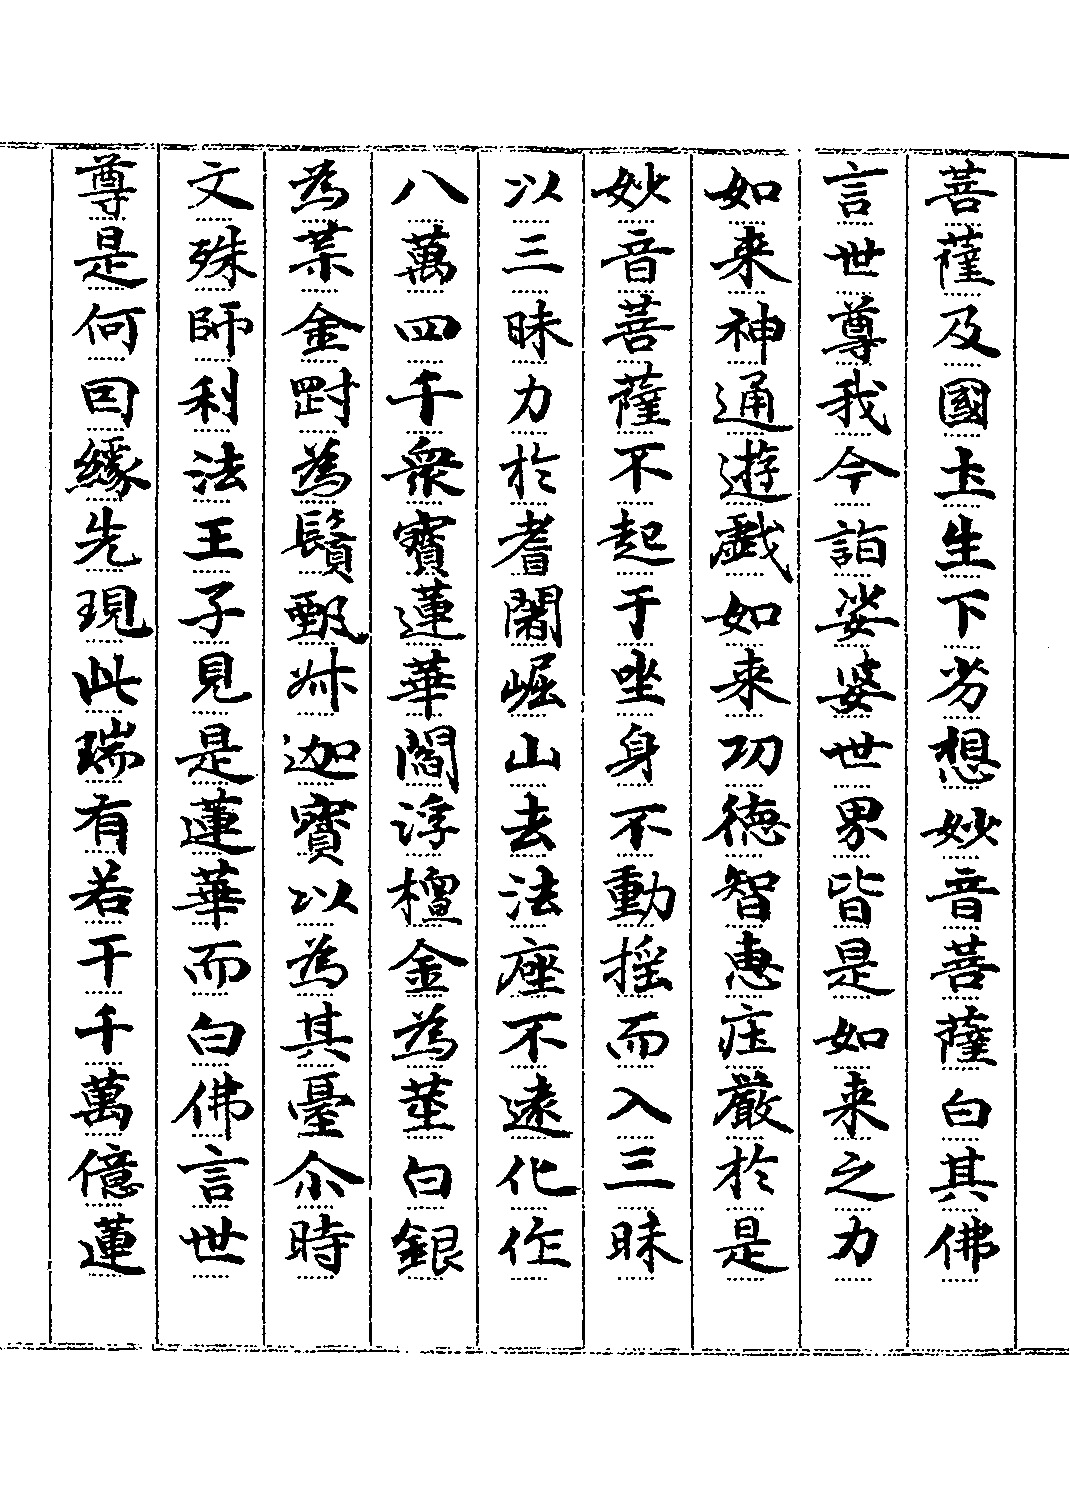 菩薩及國土生下劣想妙音菩薩白其佛
言世尊我今詣娑婆世界皆是如来之力
如来神通遊戲如来功德智惠庄嚴於是
妙音菩薩不起于坐身不動揺而入三昧
以三昧力於耆闍崛山去法座不遠化作
八萬四千衆寶蓮華閻浮檀金為莖白銀
為葉金剛為鬚甄叔迦寶以為其臺尒時
文殊師利法王子見是蓮華而白佛言世
尊是何因緣先現此瑞有若干千萬億蓮